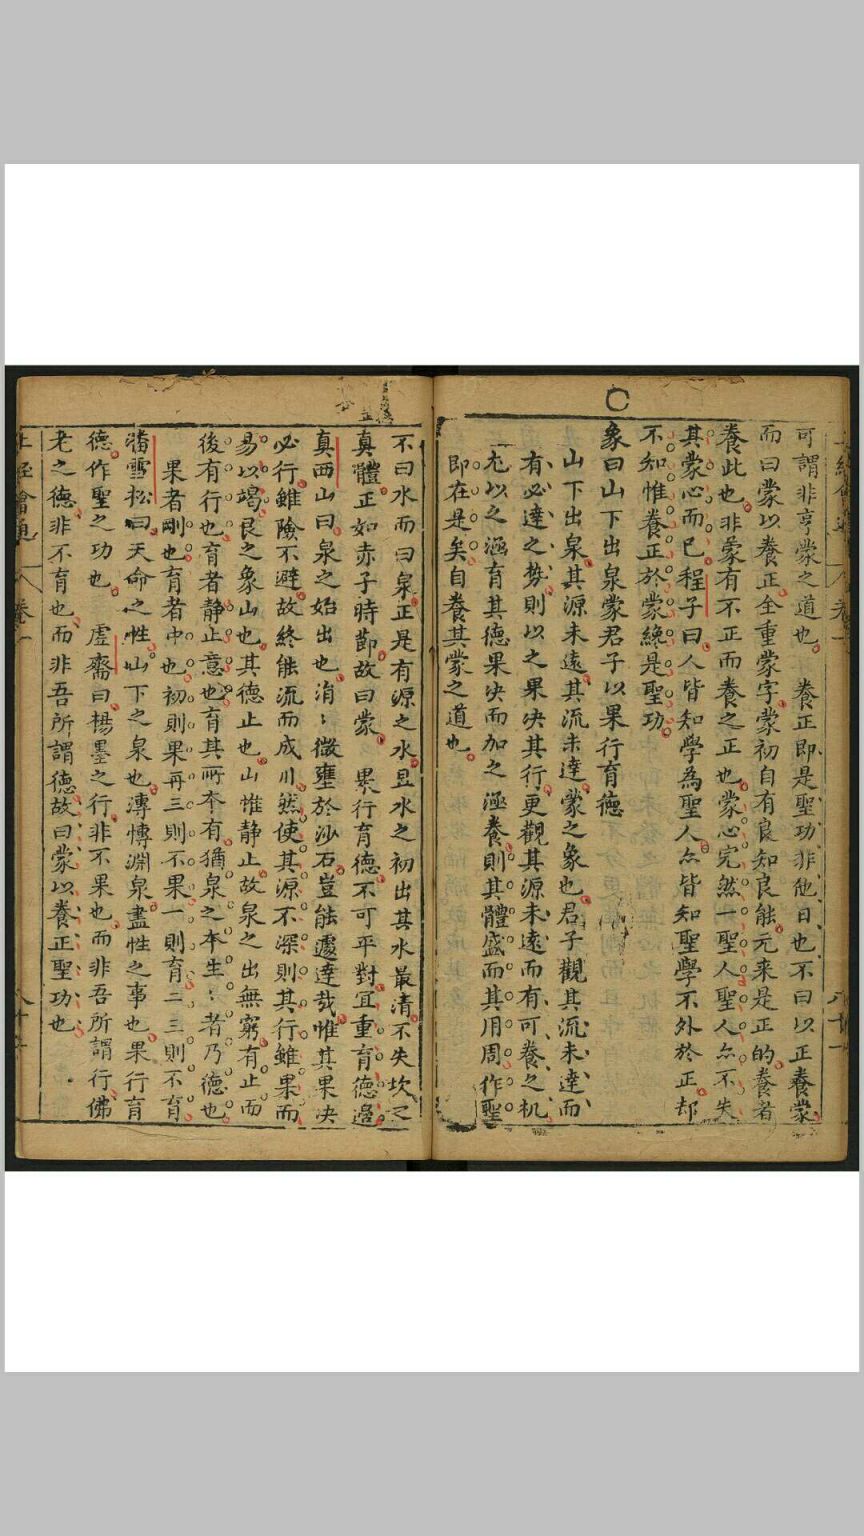 可謂非亨蒙之道也 養正即是聖功非他日也不曰以正養蒙
而曰蒙以養正全重蒙字蒙初自有良知良能元来是正的養者
養此也非蒙有不正而養之正也蒙心完然一聖人聖人亦不失
其蒙心而已程子曰人皆知學為聖人亦皆知聖學不外於正却
不知惟養正於蒙纔是聖功
象曰山下出泉蒙君子以果行育徳
山下出泉其源未遠其流未達蒙之象也君子觀其流未達而
有必達之勢則以之果决其行更觀其源未遠而有可養之机
尤以之涵育其德果决而加之涵養則其體盛而其用周作聖
即在是矣自養其蒙之道也
不曰水而曰泉正是有源之水且水之初出其水最清不失坎之
真體正如赤子時節故曰蒙 果行育德不可平對宜重育德邊
真西山曰泉之始出也涓〻微壅於沙石豈能遽達哉惟其果决
必行雖險不避故終能流而成川然使其源不深則其行雖果而
易以竭艮之象山也其德止也山惟静止故泉之出無窮有止而
後有行也育者静止意也育其所本有猶泉之本生〻者乃德也
果者剛也育者中也初則果再三則不果一則育二三則不育
潘雪松曰天命之性山下之泉也溥愽淵泉盡性之事也果行育
德作聖之功也 虚齋曰楊墨之行非不果也而非吾所謂行佛
老之德非不育也而非吾所謂德故曰蒙以養正聖功也